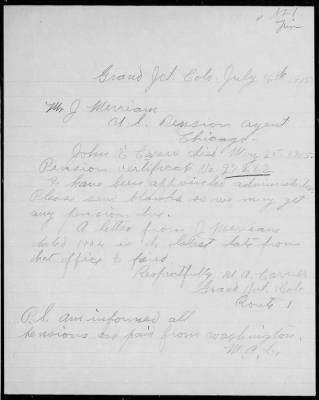 Grand Jct. Colo. July 4th 1915
Mr J Merriam
U.S. Pension Agent
Chicago.
John E Carier died May 25th 1915.
Pension Certificate No.
I have been appointed administrator
Please send blanks so we may get
any pension due.
A letter from J Merriam
dated 1902 is the latest date from
that office to found.
Respectfully M A Carrier
Grand Jct. Colo
Route 1
P.S. am informed all
pensions are paid from Washington.
M. A. C.